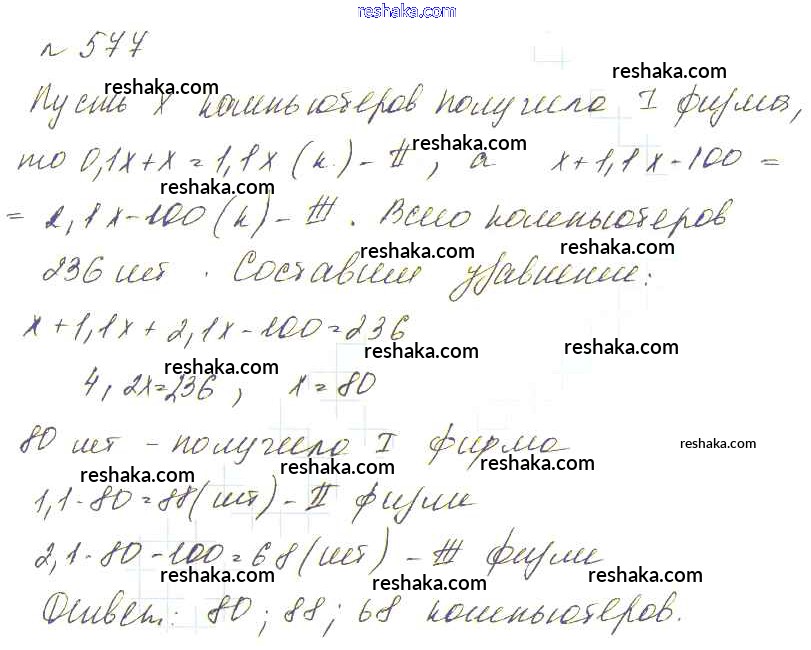 reshaka.com
№ 577
reshaka.com
reshaka.com
Пусть x компьютеров получила I фирма,
reshaka.com
то 0,1x+x=1,1x (к.) - II, а x+1,1x-100=
reshaka.com
= 2,1x-100 (к) - III. Всего компьютеров
reshaka.com reshaka.com
236 шт. Составим уравнение:
x+1,1x+2,1x-100=236
reshaka.com reshaka.com
4,2x=236, x=80
reshaka.com
80 шт - получила I фирма
reshaka.com
reshaka.com reshaka.com reshaka.com
1,1·80=88(шт) - II фирм
2,1·80-100=68(шт) - III фирм
reshaka.com reshaka.com reshaka.com
Ответ: 80; 88; 68 компьютеров.